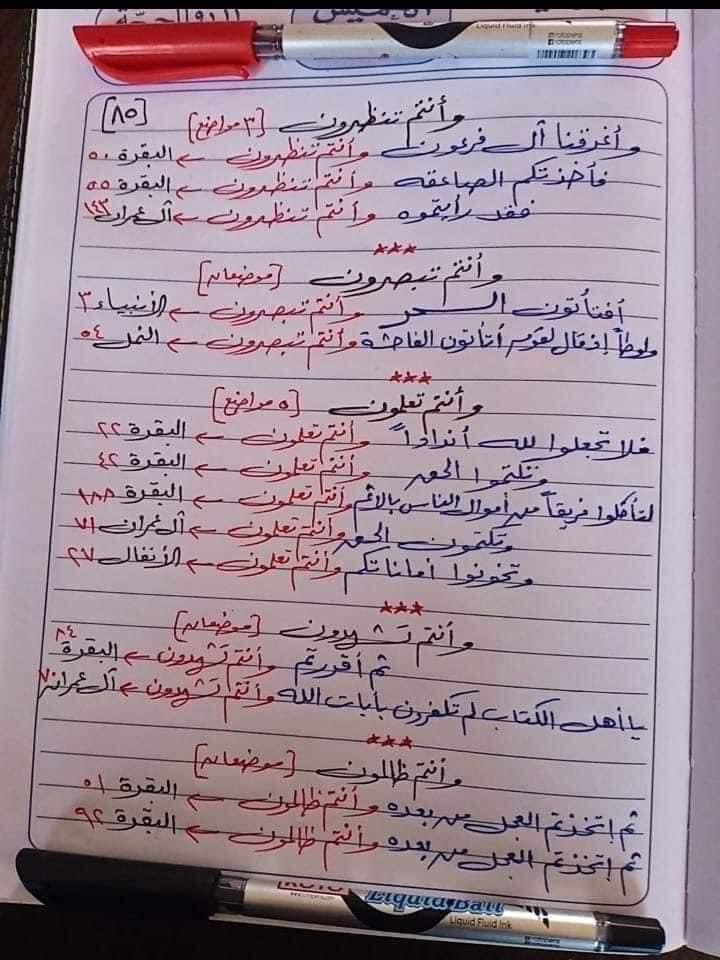 Liquid Fluid Ink
rotopens
rotopens
[٨٥]
وأنتم تنظرون [٣ مواضع]
وأغرقنا آل فرعون وأنتم تنظرون ← البقرة ٥٠
فأخذتكم الصاعقة وأنتم تنظرون ← البقرة ٥٥
فقد رأيتموه وأنتم تنظرون ← آل عمران ١٤٣
***
وأنتم تبصرون [موضعان]
أفتأتون السحر وأنتم تبصرون ← الأنبياء ٣
ولوطاً إذ قال لقومه أتأتون الفاحشة وأنتم تبصرون ← النمل ٥٤
***
وأنتم تعلمون [٥ مواضع]
فلا تجعلوا لله أنداداً وأنتم تعلمون ← البقرة ٢٢
وتكتموا الحق وأنتم تعلمون ← البقرة ٤٢
لتأكلوا فريقاً من أموال الناس بالاثم وأنتم تعلمون ← البقرة ١٨٨
وتكتمون الحق وأنتم تعلمون ← آل عمران ٧١
وتخونوا أماناتكم وأنتم تعلمون ← الأنفال ٢٧
***
وأنتم تشهدون [موضعان]
ثم أقررتم وأنتم تشهدون ← البقرة ٨٤
يا أهل الكتاب لم تكفرون بآيات الله وأنتم تشهدون ← آل عمران ٧٠
***
وأنتم ظالمون [موضعان]
ثم إتخذتم العجل من بعده وأنتم ظالمون ← البقرة ٥١
ثم إتخذتم العجل من بعده وأنتم ظالمون ← البقرة ٩٢
Liquid Ball
Liquid Fluid Ink
rotopens